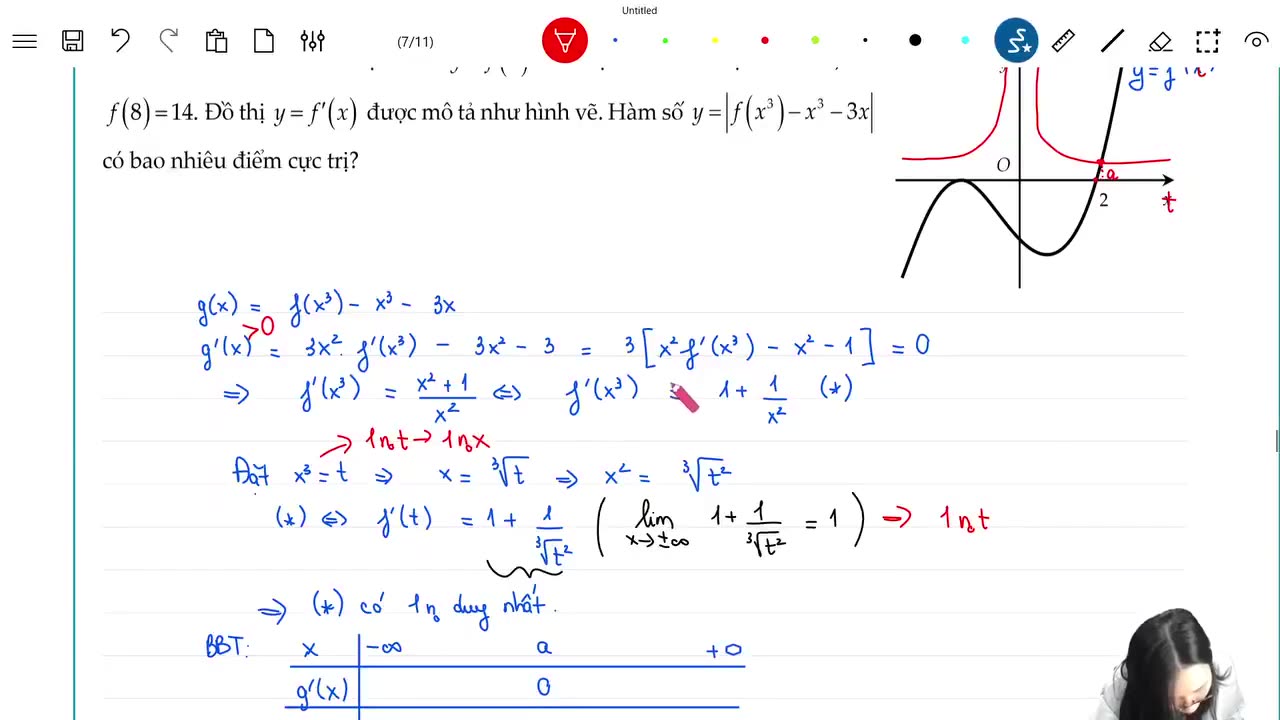 Untitled
(7/11)
f(8)=14. Đồ thị y=f′(x) được mô tả như hình vẽ. Hàm số y=|f(x³)−x³−3x|
có bao nhiêu điểm cực trị?
O
a
2
t
g(x) = f(x³) − x³ − 3x
>0
g'(x) = 3x². f'(x³) − 3x² − 3 = 3[x² f'(x³) − x² − 1] = 0
⇒ f'(x³) = (x² + 1)/x² ⇔ f'(x³) = 1 + 1/x² (*)
→ 1n₀t → 1n₀x
Đặt x³ = t ⇒ x = ∛t ⇒ x² = ∛t²
(*) ⇔ f'(t) = 1 + 1/∛t² ( lim x→±∞ 1 + 1/∛t² = 1 ) ⇒ 1n₀t
⇒ (*) có 1n₀ duy nhất.
BBT: x −∞ a +∞
g'(x) 0